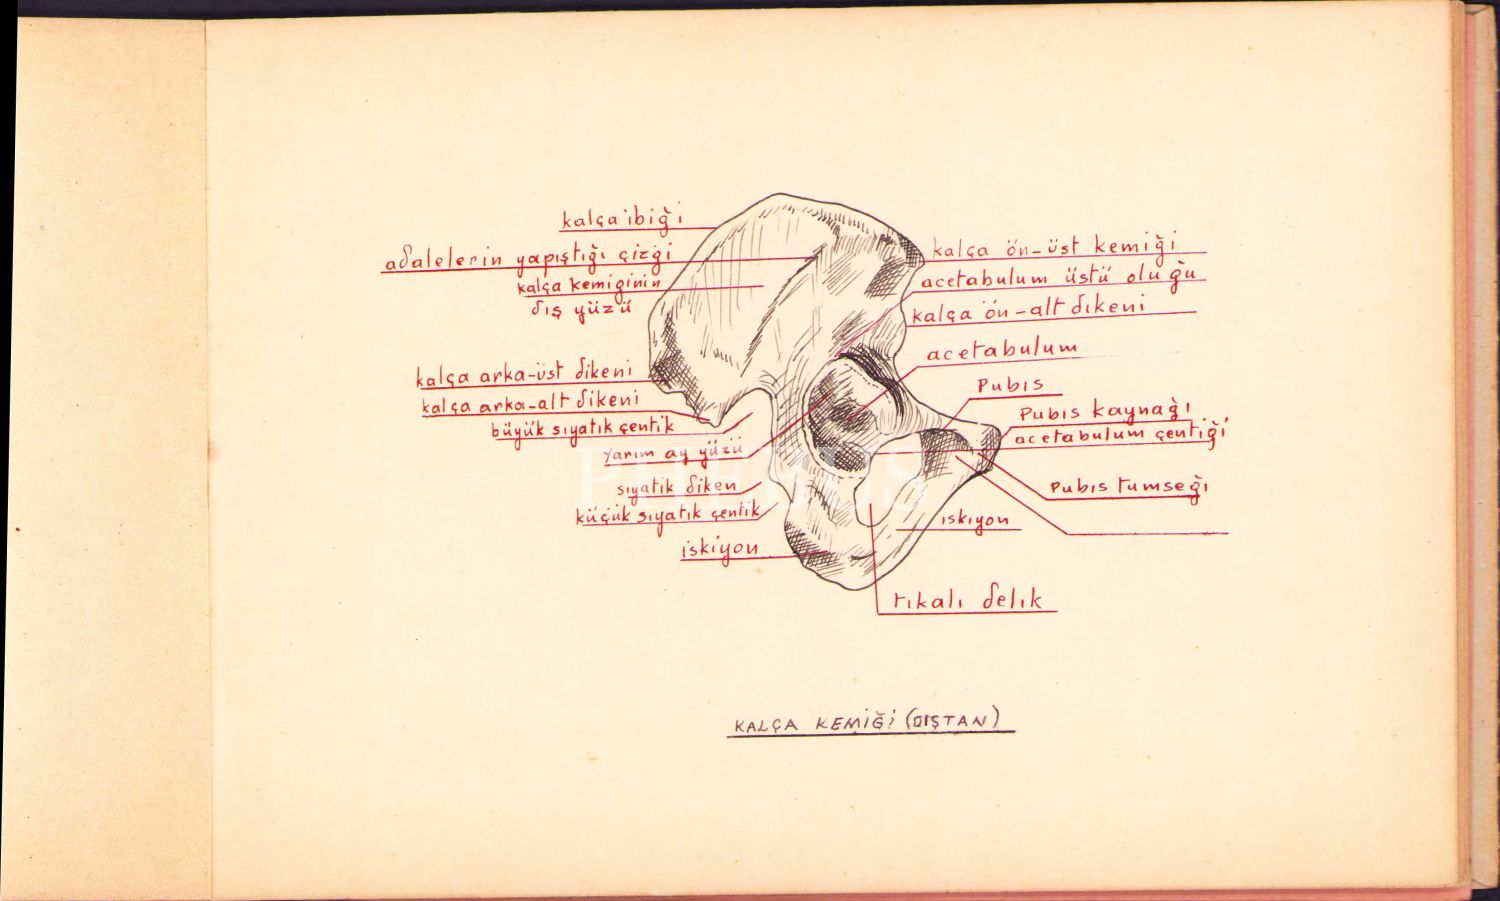 kalça ibiği
adalelerin yapıştığı çizgi
kalça kemiginin
dış yüzü
kalça arka-üst dikeni
kalça arka-alt dikeni
büyük sıyatik çentik
yarım ay yüzü
sıyatik diken
küçük sıyatik çentik
iskiyon
kalça ön-üst kemiği
acetabulum üstü oluğu
kalça ön-alt dikeni
acetabulum
Pubıs
Pubıs kaynağı
acetabulum çentiği
Pubıs tumseği
ıskıyon
tıkalı delık
PHEBUS
KALÇA KEMİĞİ (DIŞTAN)